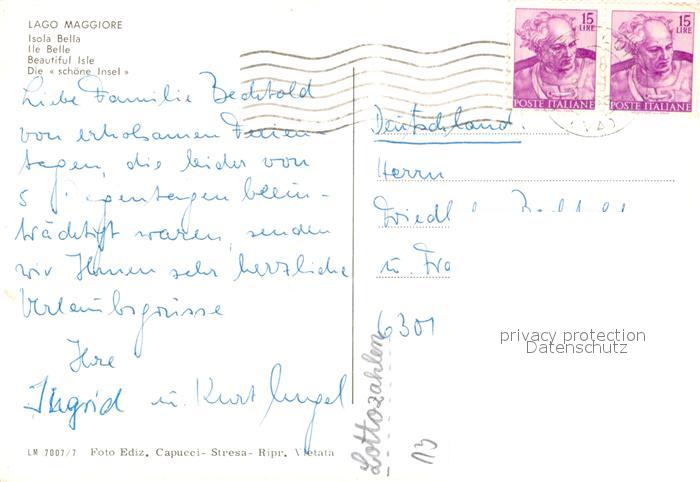 LAGO MAGGIORE
Isola Bella
Ile Belle
Beautiful Isle
Die « schöne Insel »
15
LIRE
POSTE ITALIANE
15
LIRE
POSTE ITALIANE
Liebe Familie Bechtold
von erholsamen Ferien-
tagen, die leider von
5 Regentagen beein-
trächtigt waren, senden
wir Ihnen sehr herzliche
Urlaubsgrüsse
Ihre
Ingrid u. Kurt
Deutschland.
Herrn
u.
6301
privacy protection
Datenschutz
Lottozahlen
13
LM 7007/7 Foto Ediz. Capucci - Stresa - Ripr. Vietata